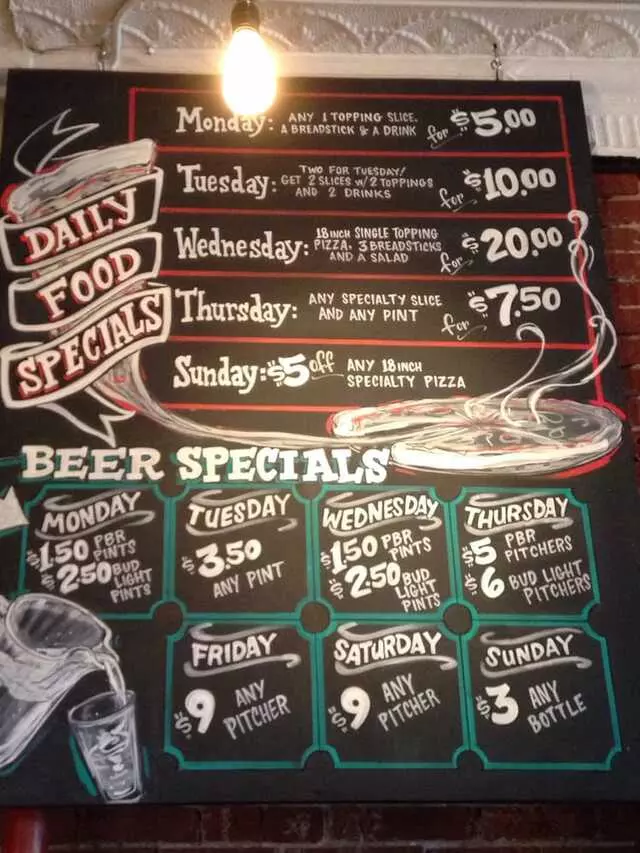 DAILY
FOOD
SPECIALS
Monday: ANY 1 TOPPING SLICE.
A BREADSTICK & A DRINK for $5.00
Tuesday: TWO FOR TUESDAY!
GET 2 SLICES W/2 TOPPINGS
AND 2 DRINKS for $10.00
Wednesday: 18 INCH SINGLE TOPPING
PIZZA. 3 BREADSTICKS
AND A SALAD for $20.00
Thursday: ANY SPECIALTY SLICE
AND ANY PINT for $7.50
Sunday: $5 off ANY 18 INCH
SPECIALTY PIZZA
BEER SPECIALS
MONDAY
$1.50 PBR
PINTS
$2.50 BUD
LIGHT
PINTS
TUESDAY
$3.50
ANY PINT
WEDNESDAY
$1.50 PBR
PINTS
$2.50 BUD
LIGHT
PINTS
THURSDAY
$5 PBR
PITCHERS
$6 BUD LIGHT
PITCHERS
FRIDAY
$9 ANY
PITCHER
SATURDAY
$9 ANY
PITCHER
SUNDAY
$3 ANY
BOTTLE